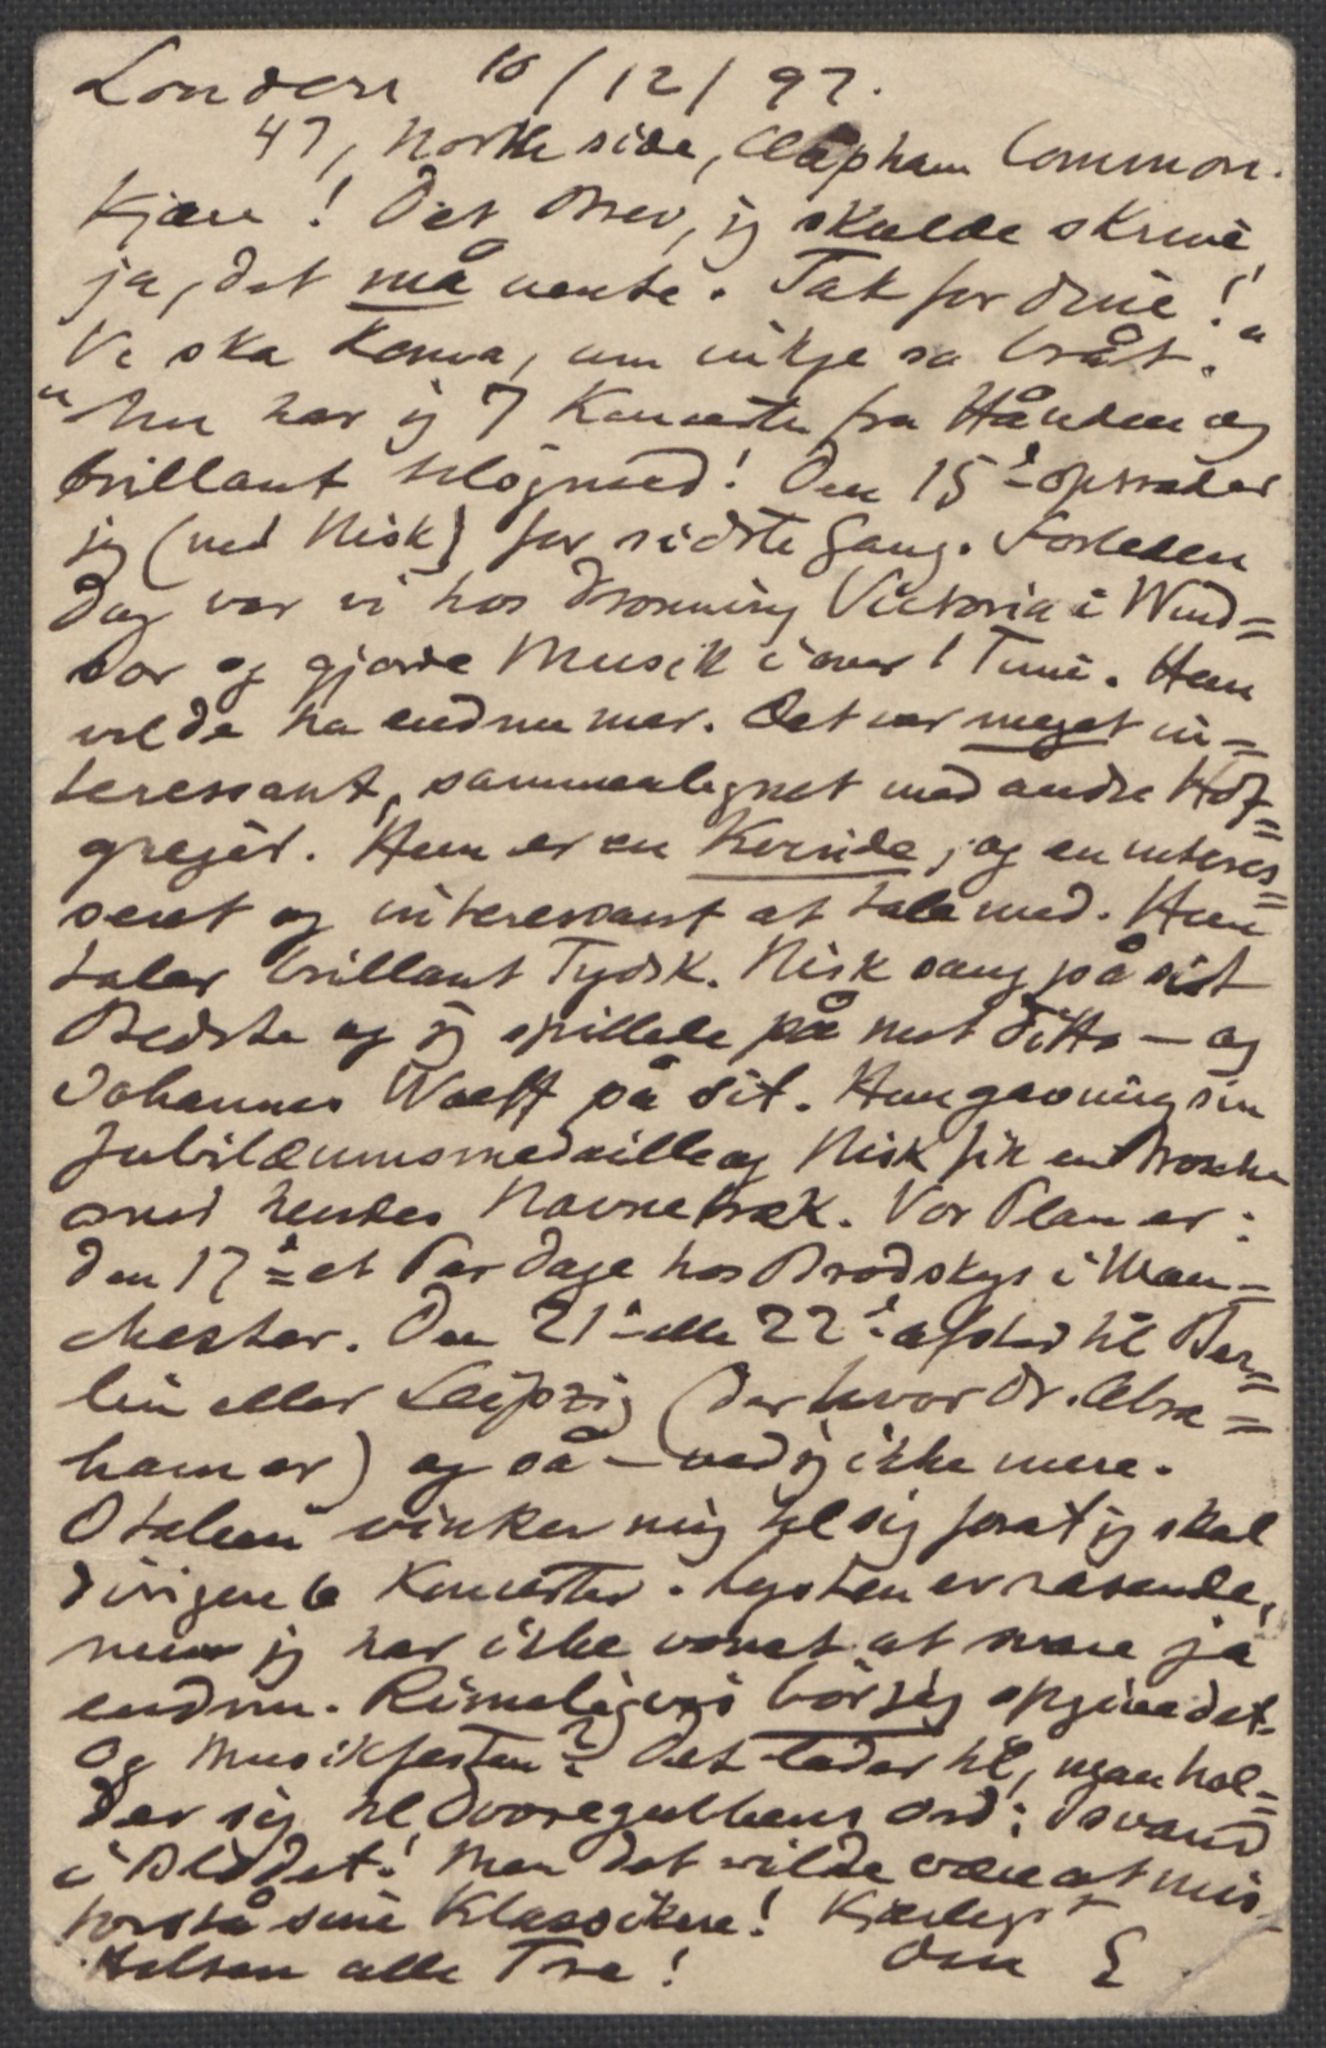 London 10/12/97.
47, North side, Clapham Common.
Kjære! Det Brev, jeg skulde skrive,
ja, det må vente. Tak for dine!
Ve ska koma, um inkje so bråt."
"Nu har jeg 7 Koncerter fra Hånden og
brillant tilöjned! Den 15de optræder
jeg (med Nisk) for sidste Gang. Forleden
Dag var vi hos Dronning Victoria i Wind=
sor og gjorde Musik i over 1 Time. Hun
vilde ha endnu mer. Det var meget in=
teressant, sammenlignet med andre Hof=
grejer. Hun er en Kvinde, og en interes=
seret og interessant at tale med. Hun
taler brillant Tydsk. Nisk sang på sit
Bedste og jeg spillede på mit ditto – og
Johannes Wolff på sit. Hun gav mig sin
Jubilæumsmedaille og Nisk fik en Broche
med hendes Navnetræk. Vor Plan er:
den 17de et Par Dage hos Brodskys i Man=
chester. Den 21de eller 22de afsted til Ber=
lin eller Leipzig (der hvor Dr. Abra=
ham er) og så – ved jeg ikke mere.
Italien vinker mig til sig forat jeg skal
dirigere 6 Koncerter. Lysten er rasende,
men jeg har ikke vovet at svare ja
endnu. Rimeligvis bör jeg opgive det.
Og Musikfesten? Det lader til, man hol=
der sig til Dovregubbens Ord: Isvand
i Blodet! Men det vilde være at mis=
forstå sine Klassikere! Kjærligst
Hilsen alle Tre! Din E.